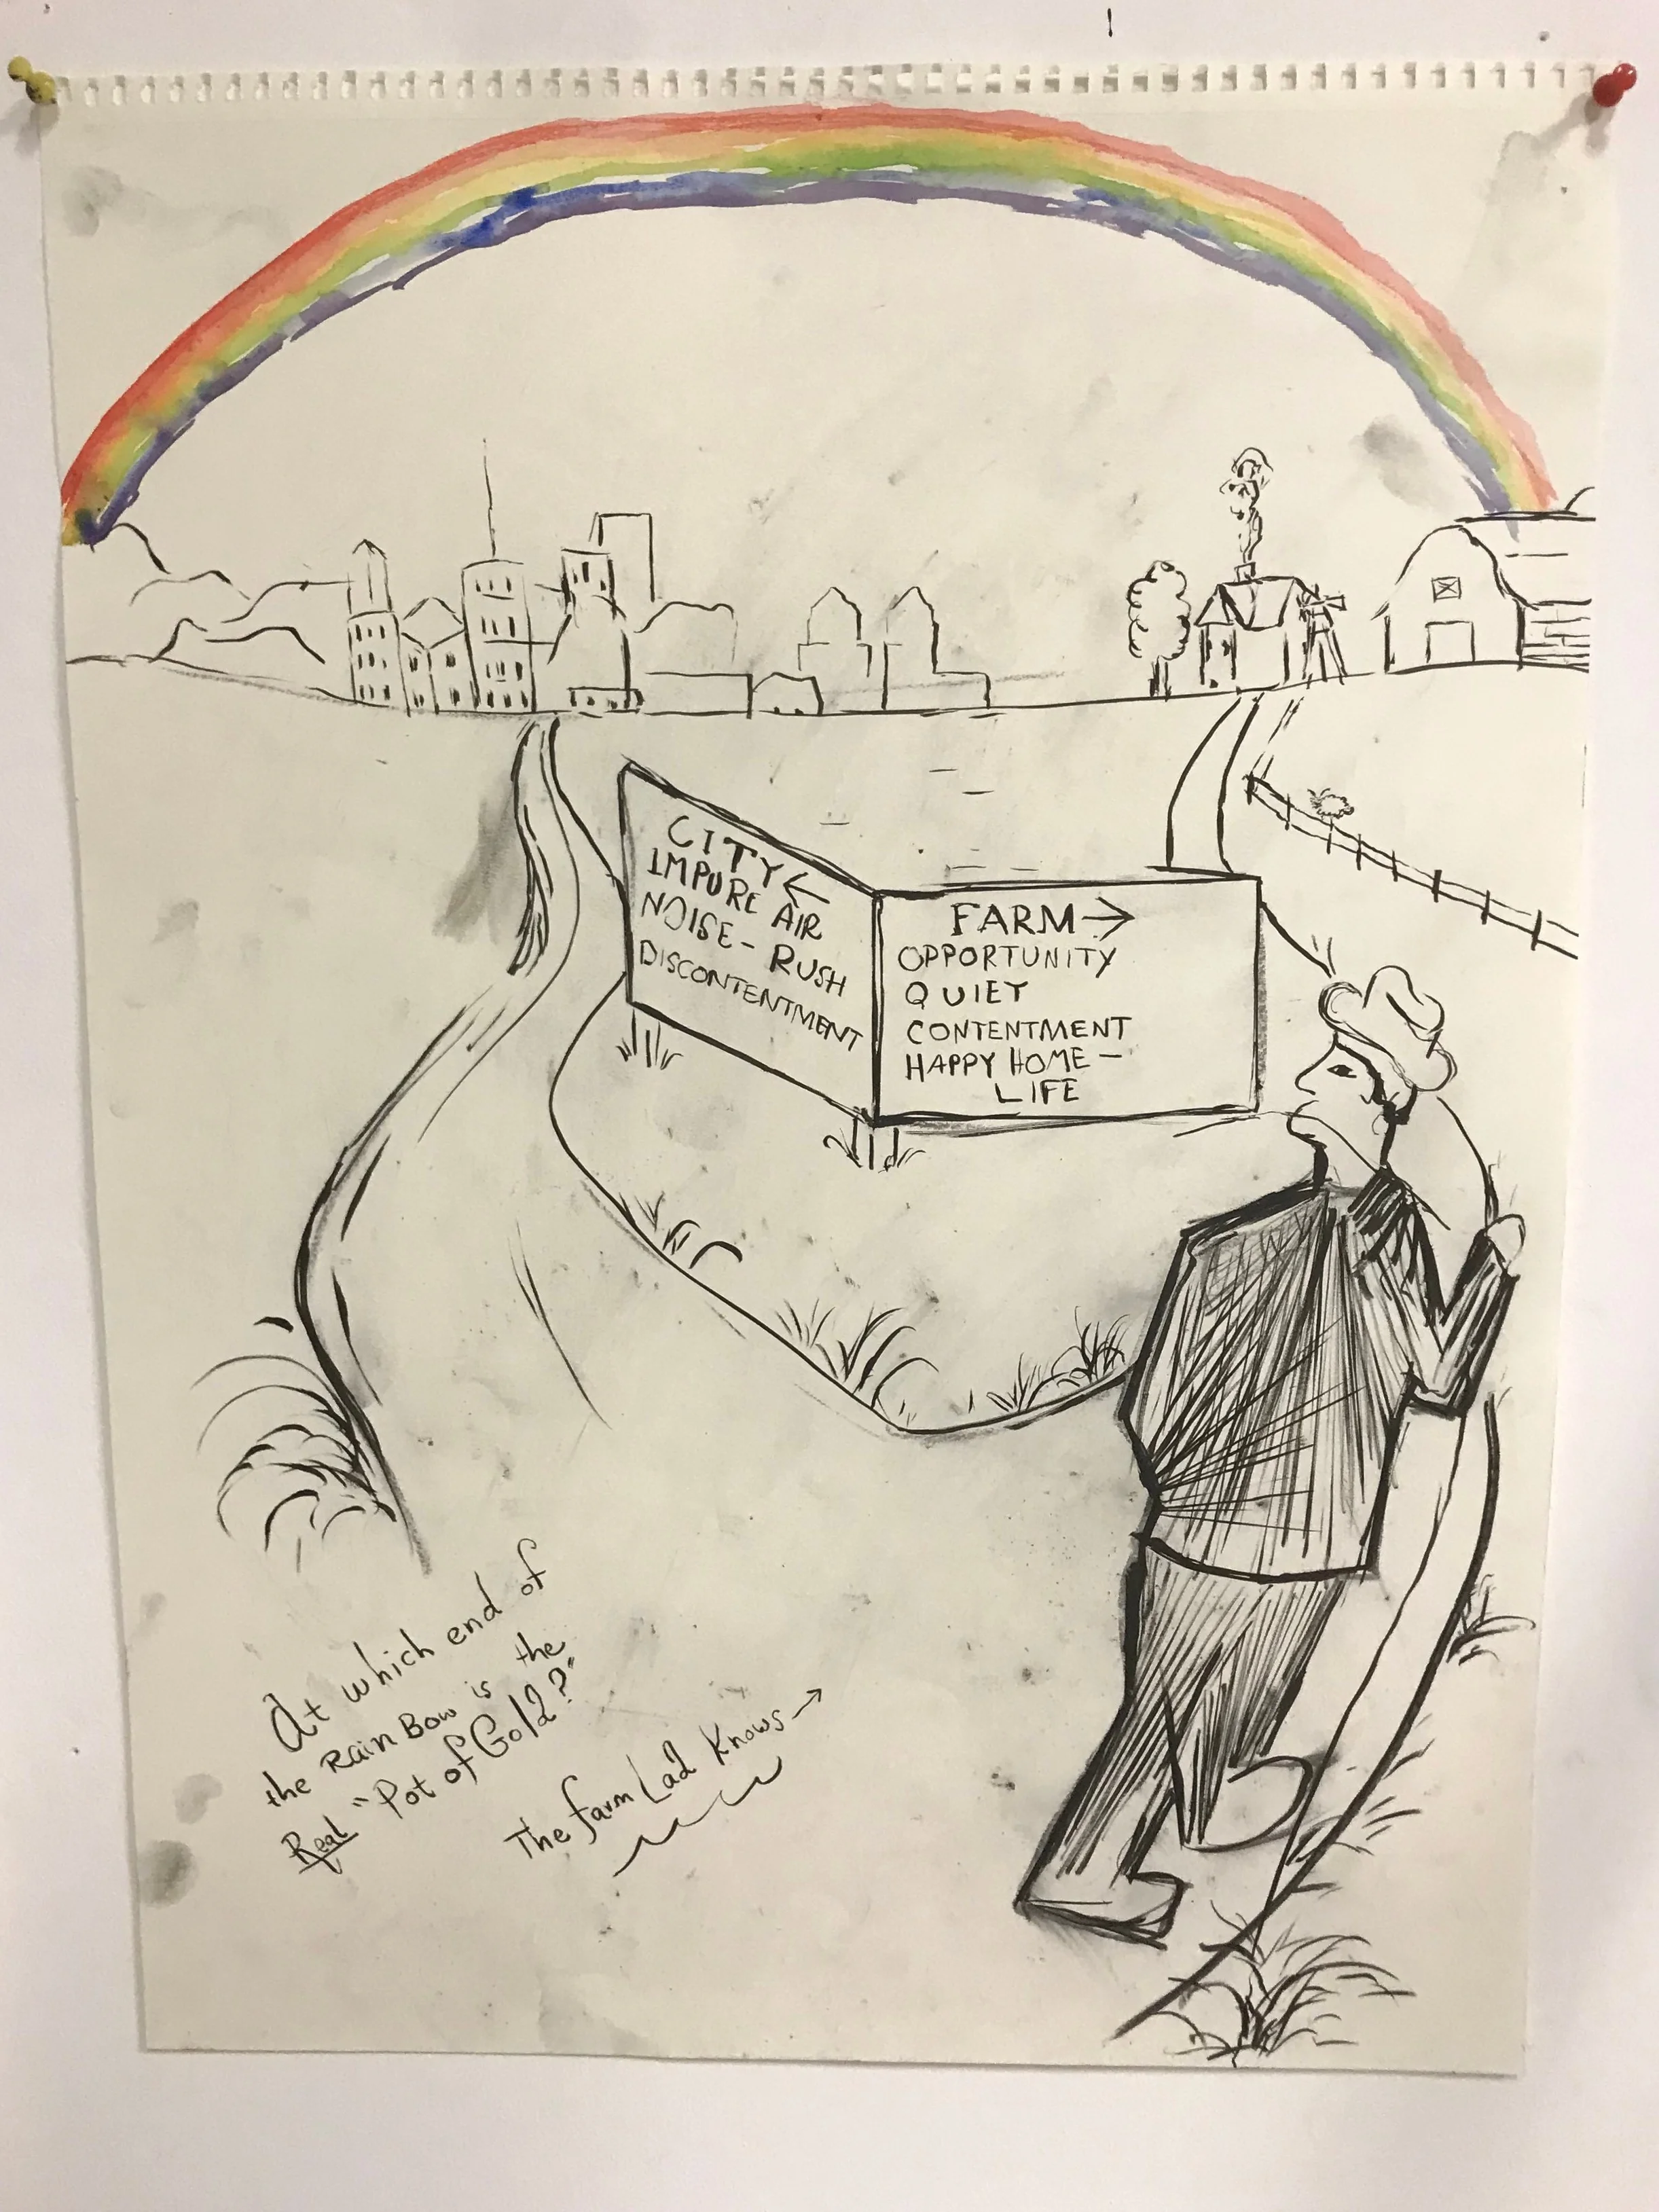 CITY ←
IMPURE AIR
NOISE - RUSH
DISCONTENTMENT
FARM →
OPPORTUNITY
QUIET
CONTENTMENT
HAPPY HOME -
LIFE
At which end of
the Rain Bow is the
Real "Pot of Gold?"
The farm Lad Knows →